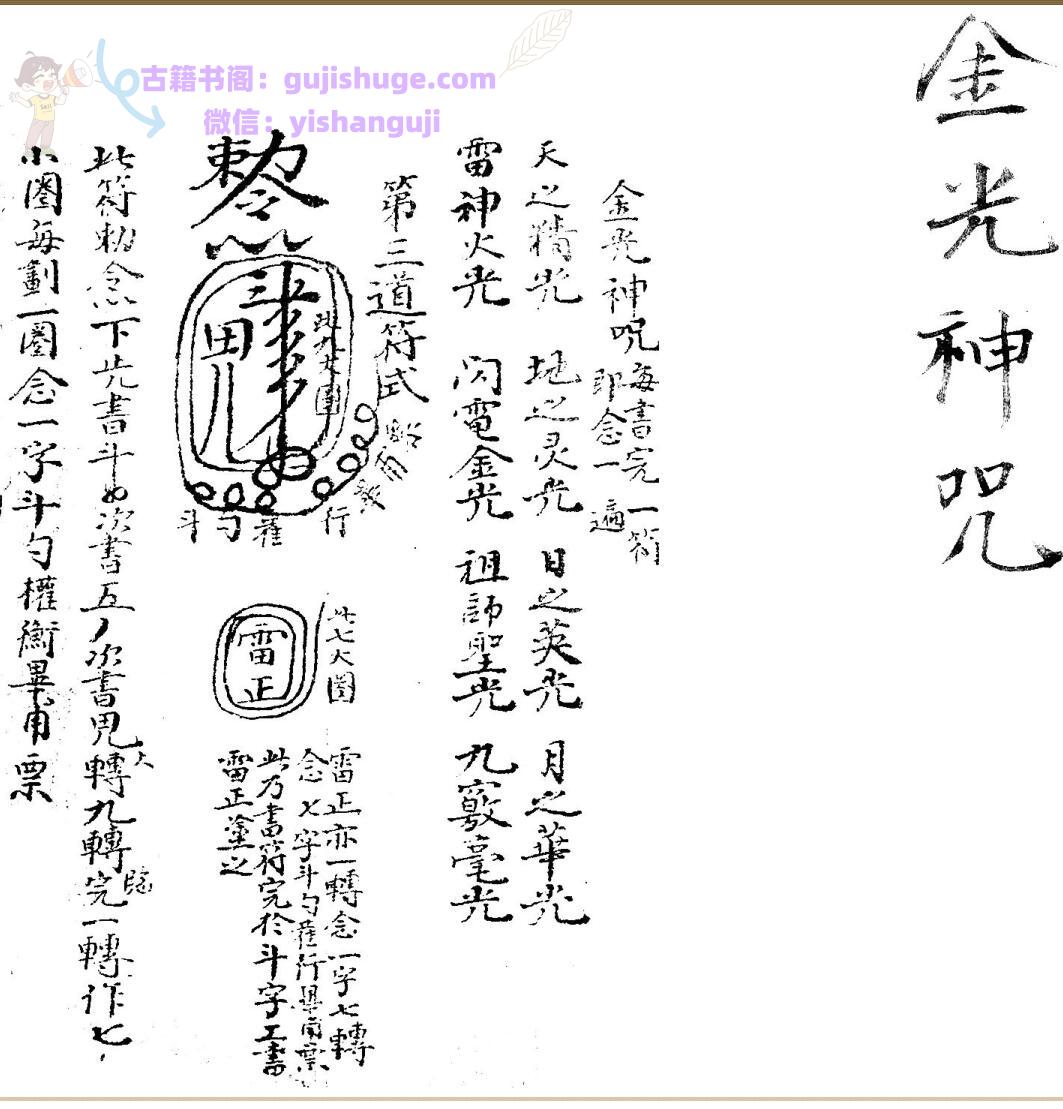 古籍书阁：gujishuge.com
微信：yishanguji
金光神咒
金光神呪 每書完一符即念一遍
天之精光 地之灵光 日之英光 月之華光
雷神火光 閃電金光 祖師聖光 九竅毫光
第三道符式
敕令
此九大圈
田儿
斗勺權行畢甪票
此七大圈
雷正
雷正亦一轉念一字七轉
念七字斗勺權行畢甪票
此乃書符完於斗字工書
雷正塗之
此符勅念下先書斗 次書互 次書 轉九轉完一轉作七
小圈每劃一圈念一字斗勺權衡畢甪票